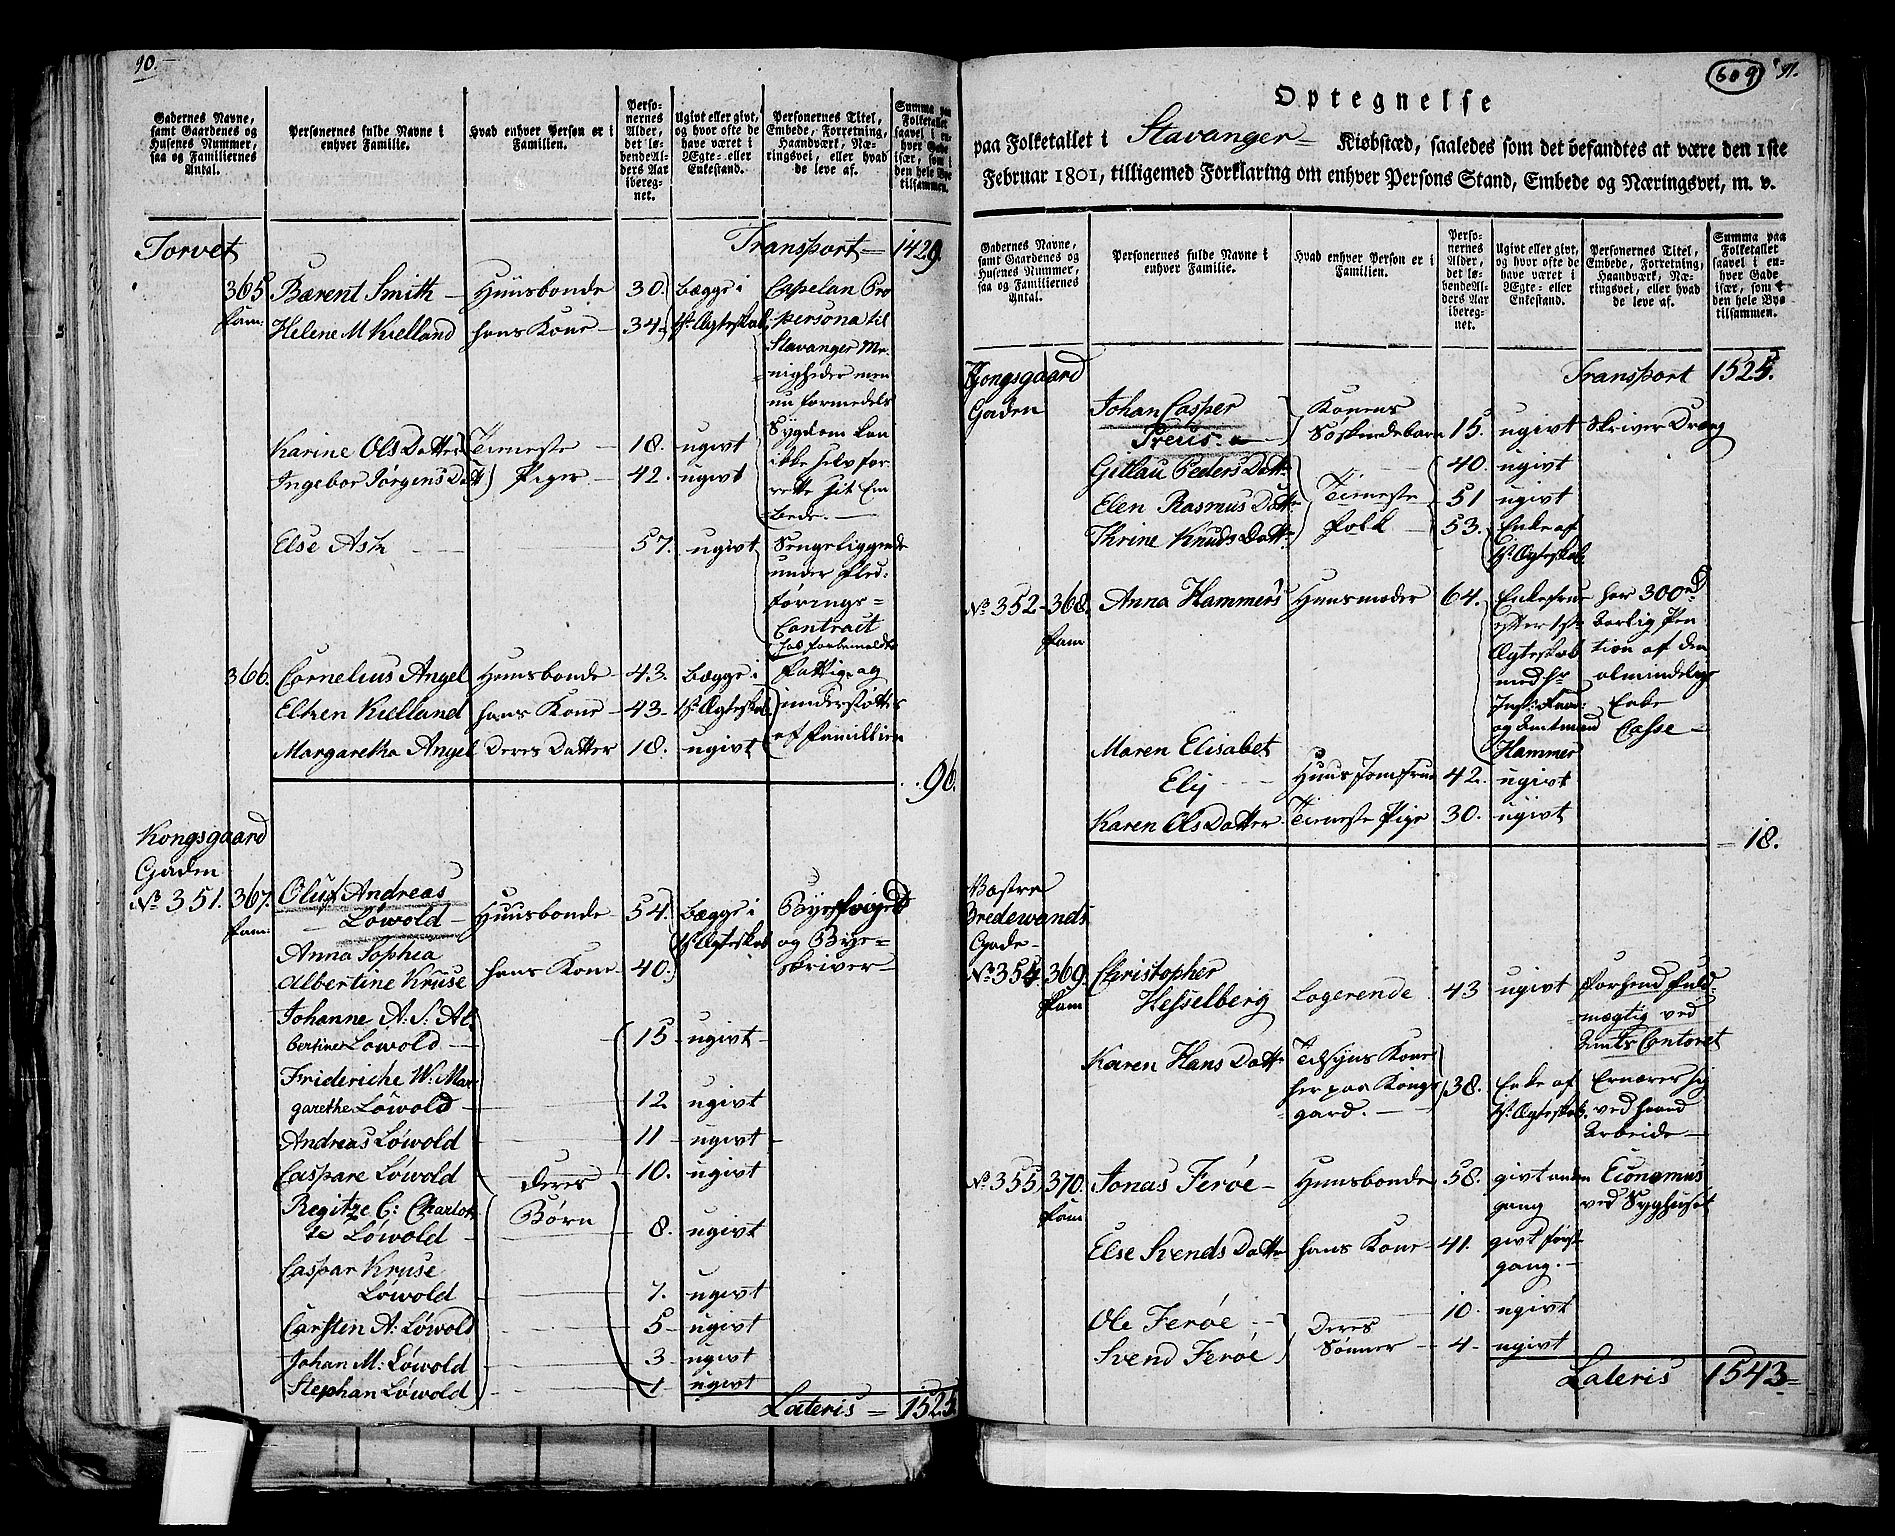 90.
Gadernes Navne,
samt Gaardenes og
Husenes Nummer,
saa og Familiernes
Antal.
Personernes fulde Navne i
enhver Familie.
Hvad enhver Person er i
Familien.
Perso-
nernes
Alder,
det lø-
bende Al-
ders Aar
ibereg-
net.
Ugivt eller givt,
og hvor ofte de
have været i
Ægte- eller
Enkestand.
Personernes Titel,
Embede, Forretning,
Haandværk, Næ-
ringsvei, eller hvad
de leve af.
Summa paa
Folketallet
saavel i en-
hver Gade
især, som i
den hele Bye
tilsammen.
Torvet
Transport 1429.
365 Bærent Smith Huusbonde 30. Bægge i Capelan Pro
Fam: Helene M Kielland hans Kone 34. 1st Ægteskab persona til
Stavanger Me-
nigheder men
nu formedels
Sygdom kan
Karine Ols Datter Tieneste 18. ugivt ikke selv for-
Ingebor Jørgens Datt Piger 42. ugivt rette sit Em-
bede.
Else Ask 57. ugivt Sengeliggende
under Fled-
førings-
Contract
366. Cornelius Angel Huusbonde 43. Bægge i Fattige og
Elken Kielland hans Kone 43. 1st Ægteskab understøttes
Margaretha Angel Deres Datter 18. ugivt af Famillien
96.
Kongsgaard
Gaden
No 351. 367. Oluf Andreas
Fam: Løwold Huusbonde 54. Bægge i Byefoged
1st Ægteskab og Bye-
Anna Sophia
Albertine Kruse hans Kone 40. skriver
Johanne A: S: Al-
bertine Løwold 15 ugivt
Frideriche W: Mar-
garethe Løwold 12 ugivt
Andreas Løwold 11 ugivt
Caspare Løwold Deres 10. ugivt
Regitze C: Charlot-
te Løwold Børn 8. ugivt
Caspar Kruse
Løwold 7. ugivt
Carsten A: Løwold 5 ugivt
Johan M: Løwold 3 ugivt
Stephan Løwold 1 ugivt
Lateris 1525.
609 91.
Optegnelse
paa Folketallet i Stavanger Kiøbstæd, saaledes som det befandtes at være den 1ste
Februar 1801, tilligemed Forklaring om enhver Persons Stand, Embede og Næringsvei, m. v.
Gadernes Navne,
samt Gaardenes og
Husenes Nummer,
saa og Familiernes
Antal.
Personernes fulde Navne i
enhver Familie.
Hvad enhver Person er i
Familien.
Perso-
nernes
Alder,
det lø-
bende Al-
ders Aar
ibereg-
net.
Ugivt eller givt,
og hvor ofte de
have været i
Ægte- eller
Enkestand.
Personernes Titel,
Embede, Forretning,
Haandværk, Næ-
ringsvei, eller hvad
de leve af.
Summa paa
Folketallet
saavel i en-
hver Gade
især, som i
den hele Bye
tilsammen.
Kongsgaard Transport 1525.
Gaden Johan Casper Konens
Preus. Søskendebarn 15. ugivt Skriver Dreng
Gitlau Peders Datt 40. ugivt
Elen Rasmus Datt Tieneste 51 ugivt
Thrine Knuds Datt folk 53. Enke af
1st Ægteskab
No 352 368. Anna Hammers Huusmoder 64. Enkefrue har 300rd
Fam efter 1ste aarlig Pen-
Ægteskab tion af den
med Hr almindelige
Enke
og Amtmand Casse
Maren Elisabet Hammer
Elý Huus Jomfrue 42. ugivt
Karen Ols Datter Tieneste Pige 30. ugivt
18.
Vestre
Bredewands
Gade
No 354 369. Christopher
Fam Hesselberg Logerende 43 ugivt Forhend Fuld-
mægtig ved
Amts Contoret
Karen Hans Datt Tilsyns Kone
her paa Kongs- 38. Enke af Ernærer sig
gard. 1st Ægteskab ved haand
Arbeide
No 355 370. Jonas Ferøe Huusbonde 58. givt anden Economus
Fam gang ved Syghuset
Else Svends Datt hans Kone 41. givt første
gang.
Ole Ferøe Deres 10. ugivt
Svend Ferøe Sønner 4. ugivt
Lateris 1543